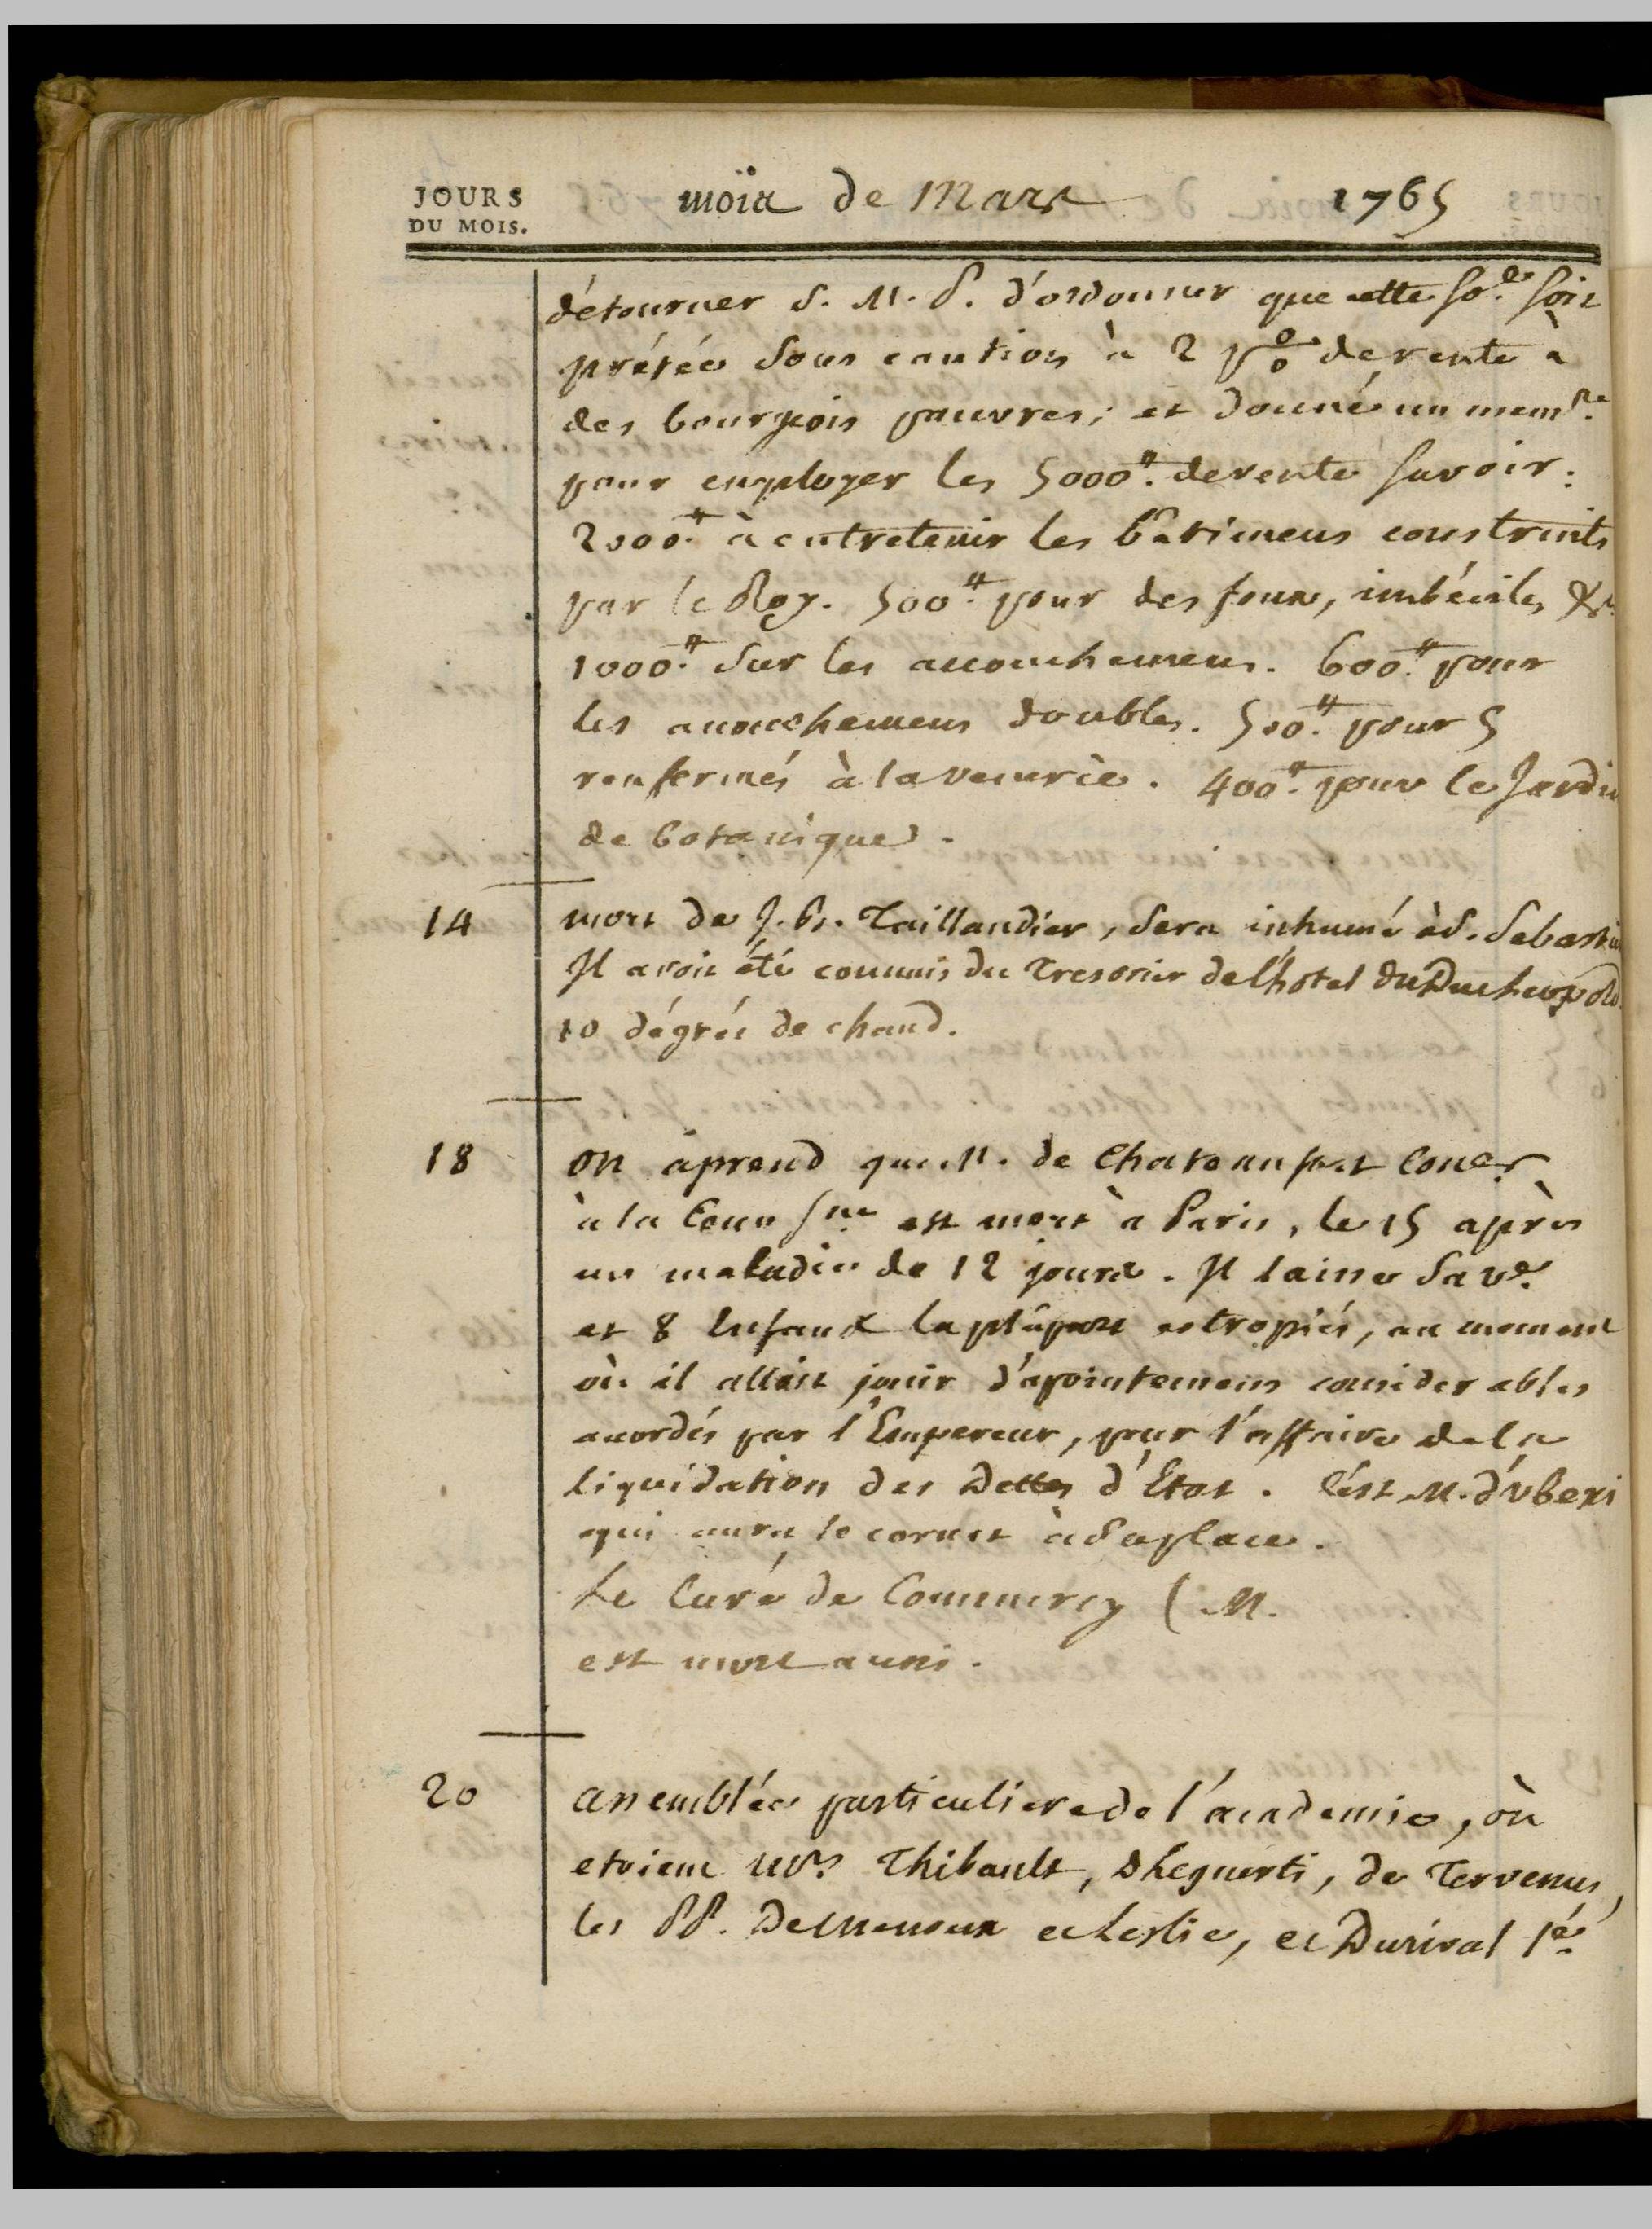 JOURS
DU MOIS.
mois de Mars 1765
détourner S. M. P. d'ordonner que cette so.e soit
prêtée sous caution à 2 p% de rente à
des bourgeois pauvres; et donné un mem.re
pour employer les 5000.# de rente savoir:
2000.# à entretenir les bâtimens construits
par le Roy. 500.# pour des foux, imbéciles &.
1000.# sur les accouchemens. 600.# pour
les accouchemens doubles. 500.# pour 5
renfermés à la venerie. 400.# pour le Jardin
de botanique.
14 mort de J. Bs. Taillandier, sera inhumé à S. Sebastien
Il avoit été commis du Tresorier de l'hôtel du Duc Leopold.
10 dégrés de chaud.
18 on aprend que M. de Chateaufort Con.er
à la Cour S.ne est mort à Paris, le 15 après
une maladie de 12 jours. Il laisse sa v.e
et 8 Enfants la plûpart estropiés, au moment
où il alloit jouir d'apointemens considerables
acordés par l'Empereur, pour l'affaire de la
liquidation des Dettes d'Etat. C'est M. d'Ubexi
qui aura le cornet à sa place.
Le Curé de Commercy (M.
est mort aussi.
20 assemblée particuliere de l'academie, où
etoient MM.rs Thibault, Sleguerti, de Tervenus,
les PP. De Menoux et Leslie, et Durival l'é.